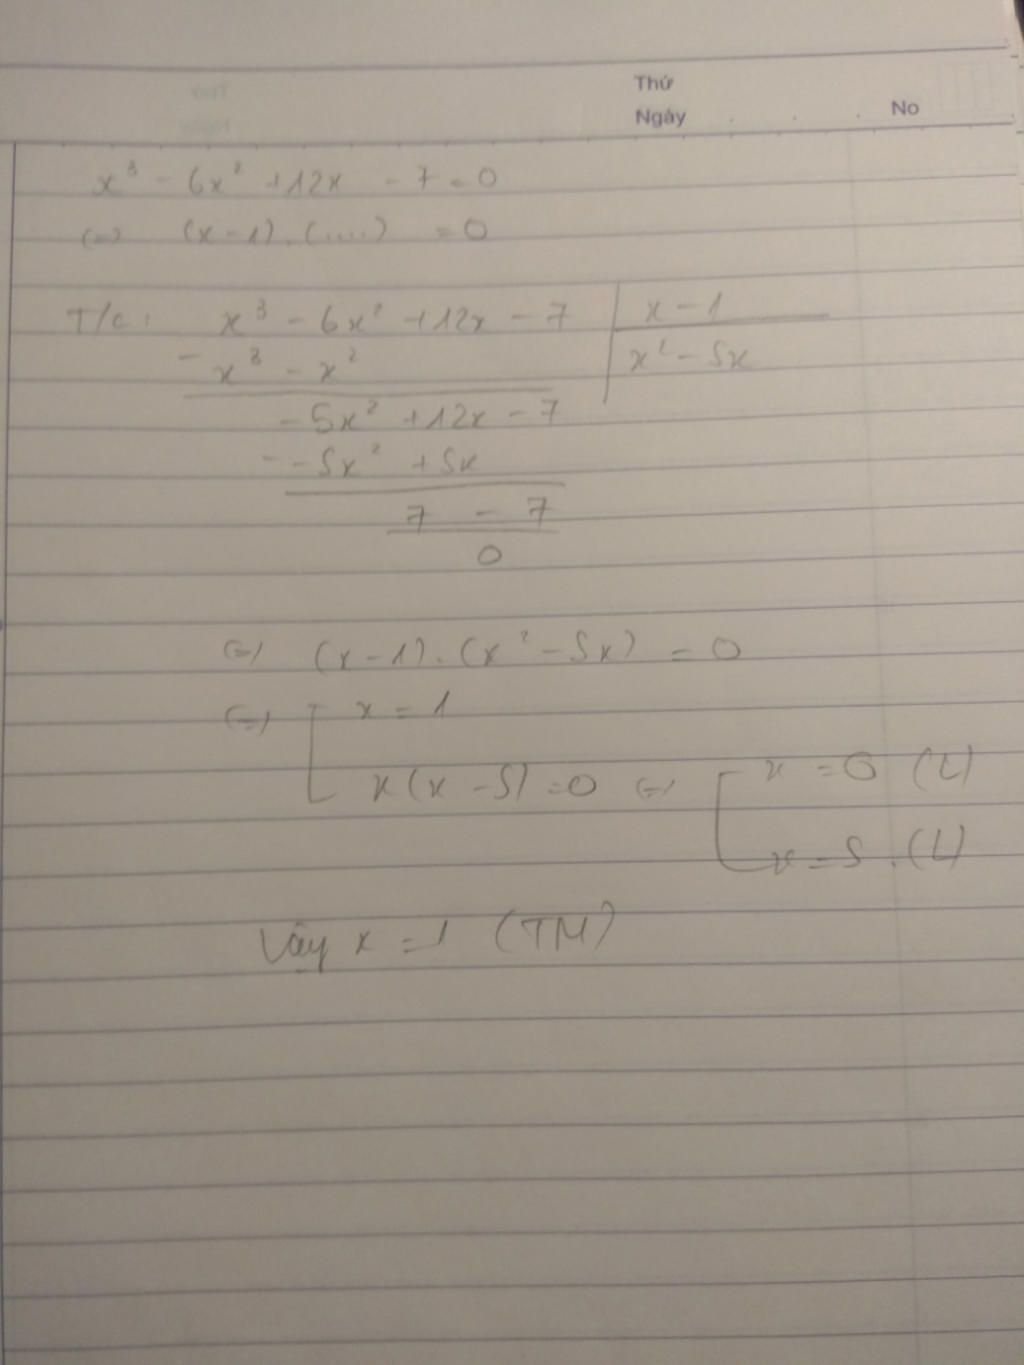 Thứ
Ngày . . . No
x³ - 6x² + 12x - 7 = 0
(=) (x - 1) . (....) = 0
T/c: x³ - 6x² + 12x - 7 | x - 1
- x³ - x² | x² - 5x
- 5x² + 12x - 7
- - 5x² + 5x
7 - 7
0
(=) (x - 1) . (x² - 5x) = 0
(=) [ x = 1
x (x - 5) = 0 (=) [ x = 0 (L)
x = 5 . (L)
Vậy x = 1 (TM)